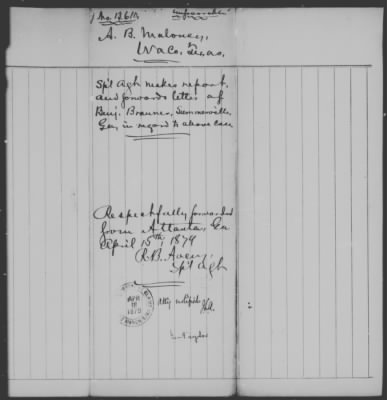 A. B. Maloney,
Waco, Texas.
Sp'l Agt makes report,
and forwards letter of
Benj. Branner, Summerville,
Ga, in regard to above case
Respectfully forwarded
from Atlanta, Ga
April 15th, 1879
R.B. Avery,
Sp'l Agt
APR
18
1879